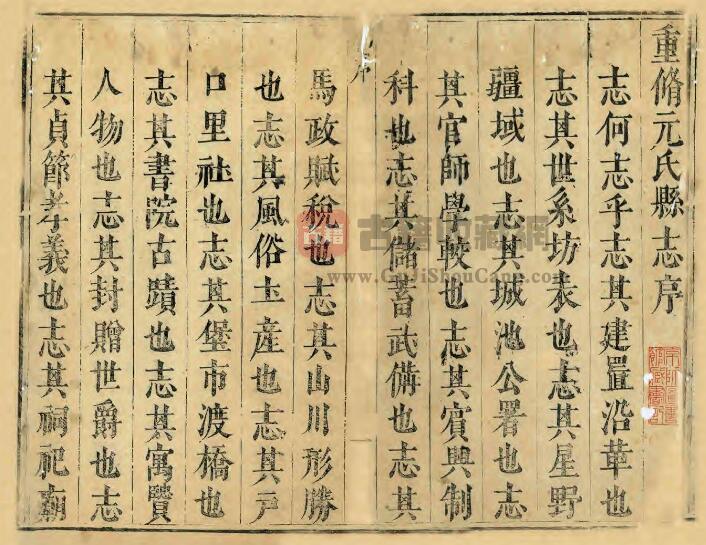 重脩元氏縣志序
志何志乎志其建置沿革也
志其世系坊表也志其星野
疆域也志其城池公署也志
其官師學較也志其賓興制
科也志其儲蓄武備也志其
序
一
馬政賦稅也志其山川形勝
也志其風俗土産也志其戸
口里社也志其堡市渡橋也
志其書院古蹟也志其寓賢
人物也志其封贈世爵也志
其貞節孝義也志其祠祀廟
古籍收藏網
www.GuJiShouCang.com